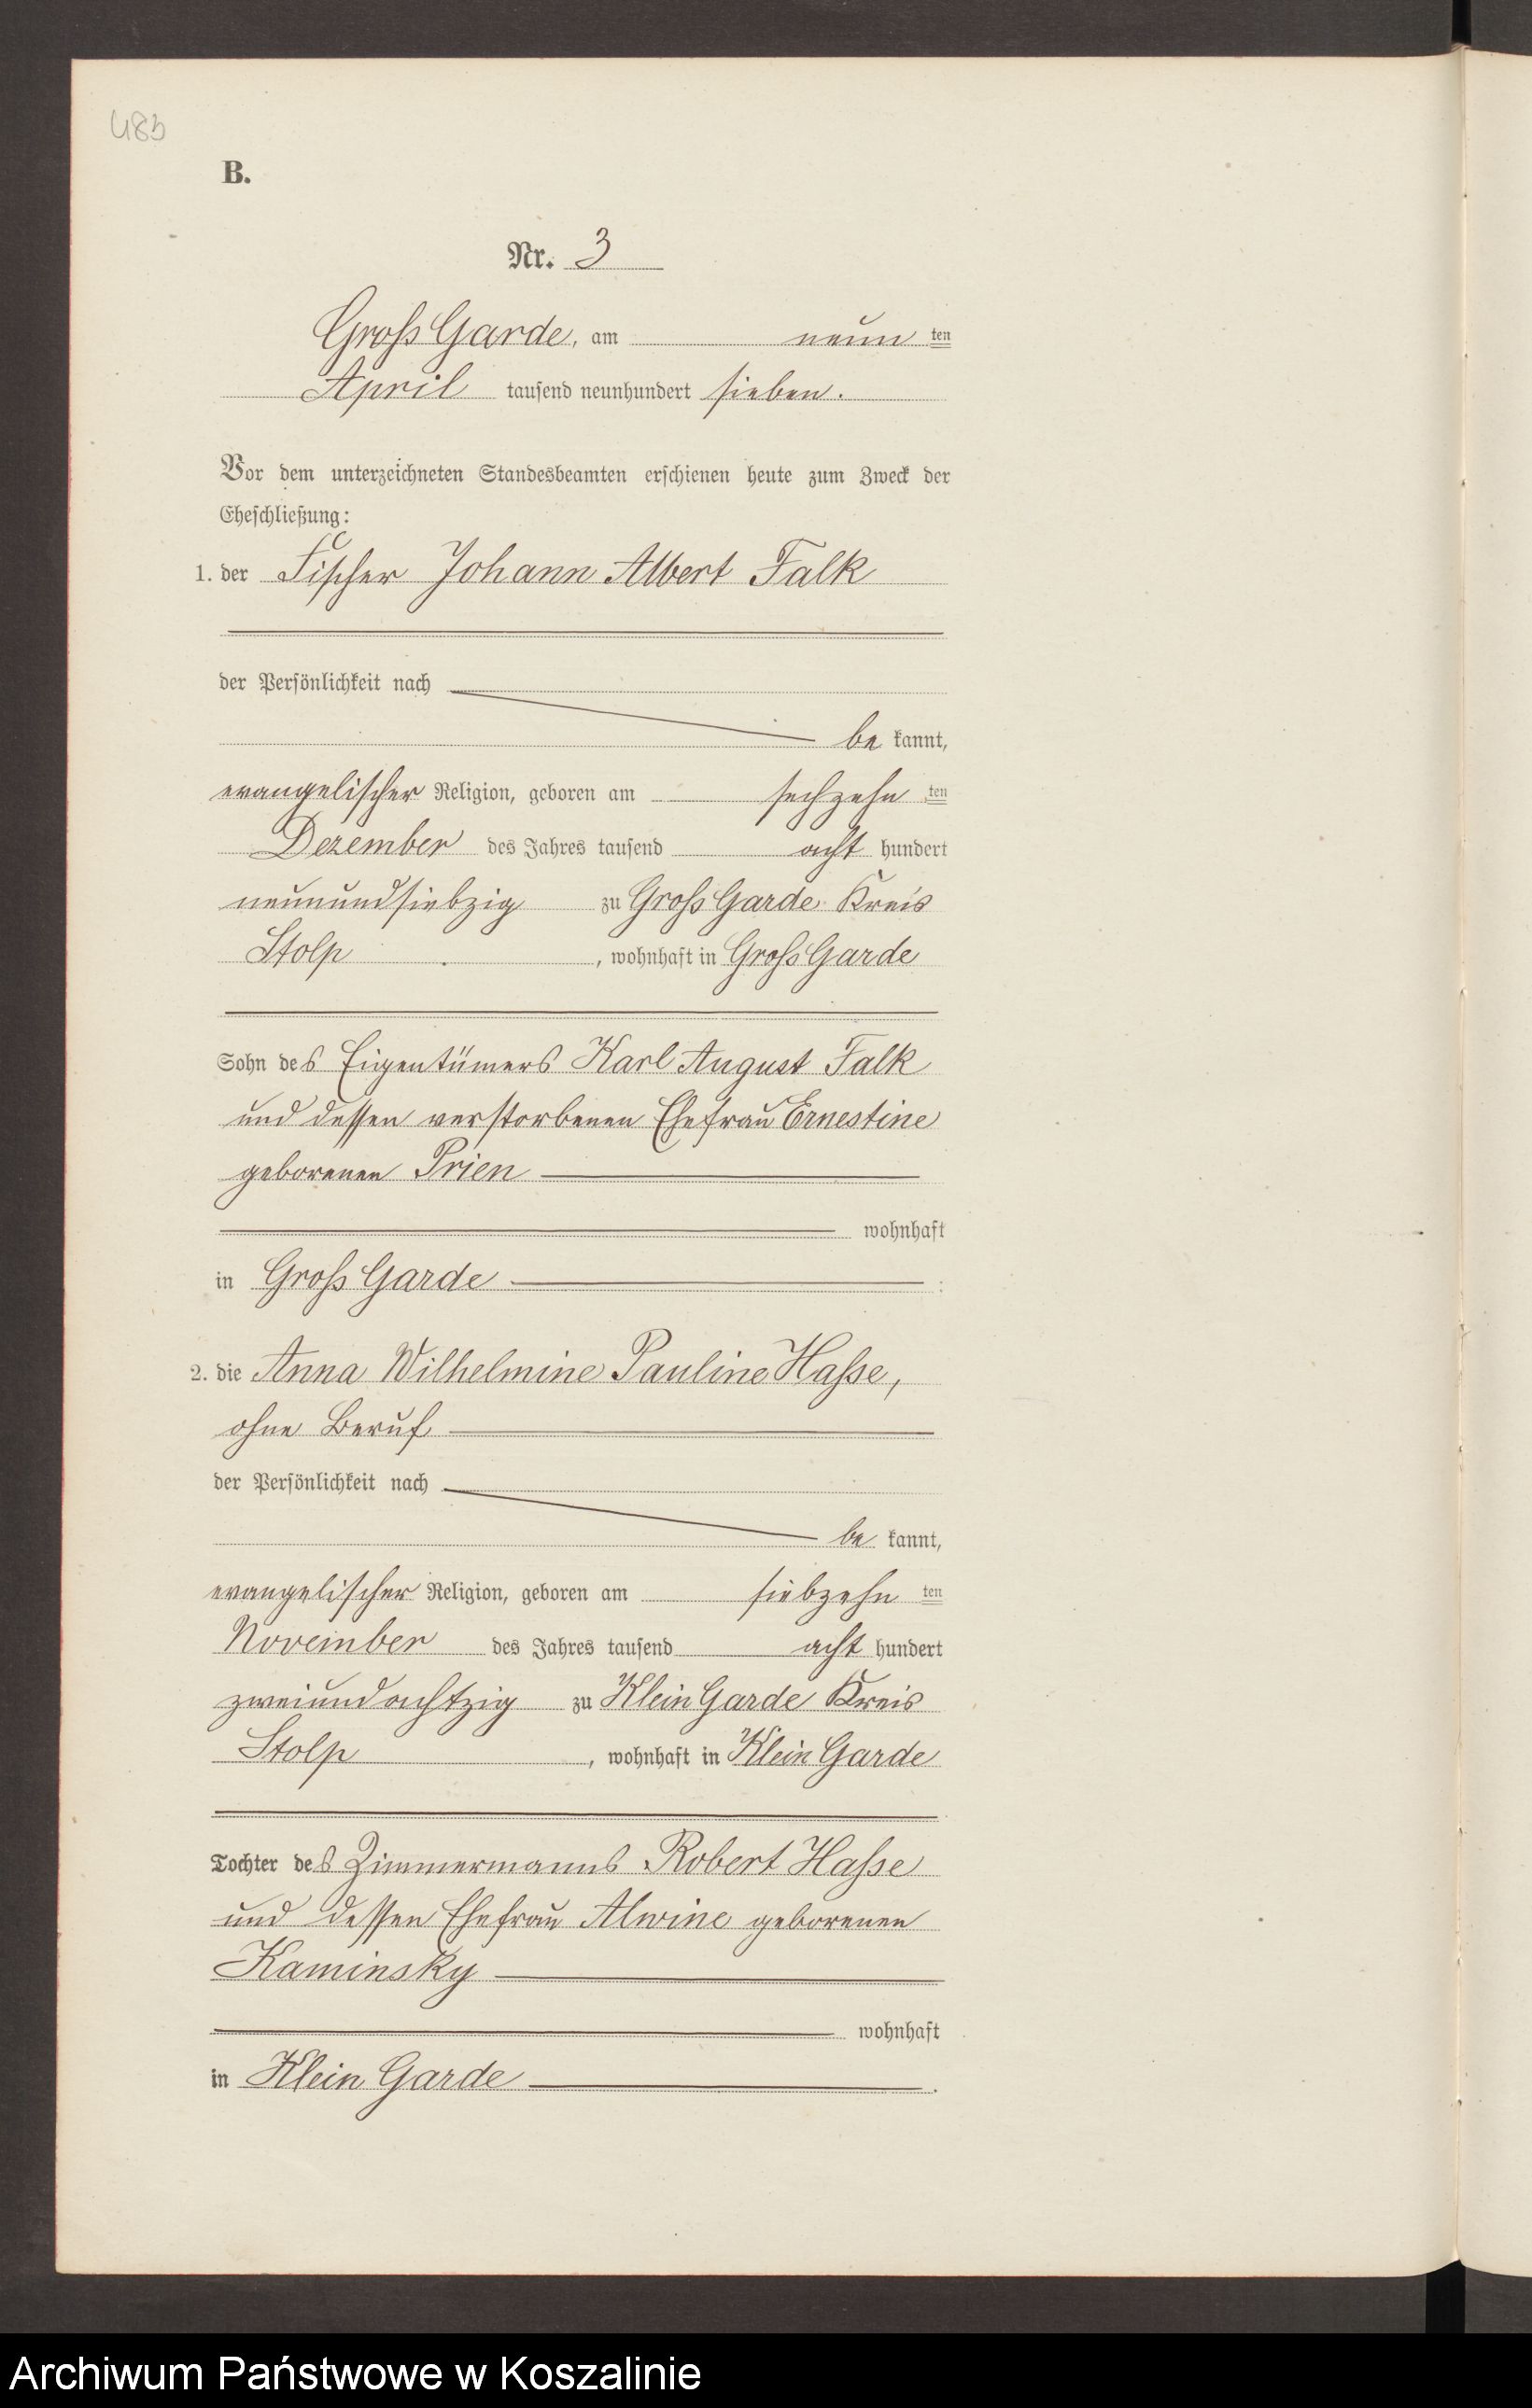 485
B.
Nr. 3
Groß Garde, am neun ten
April tausend neunhundert sieben.
Vor dem unterzeichneten Standesbeamten erschienen heute zum Zweck der
Eheschließung:
1. der Fischer Johann Albert Falk
der Persönlichkeit nach
be kannt,
evangelischer Religion, geboren am sechzehn ten
Dezember des Jahres tausend acht hundert
neunundsiebzig zu Groß Garde Kreis
Stolp, wohnhaft in Groß Garde
Sohn des Eigentümers Karl August Falk
und dessen verstorbenen Ehefrau Ernestine
geborenen Prien
wohnhaft
in Groß Garde
2. die Anna Wilhelmine Pauline Haße,
ohne Beruf
der Persönlichkeit nach
be kannt,
evangelischer Religion, geboren am siebzehn ten
November des Jahres tausend acht hundert
zweiundachtzig zu Klein Garde Kreis
Stolp, wohnhaft in Klein Garde
Tochter des Zimmermanns Robert Haße
und dessen Ehefrau Alwine geborenen
Kaminsky
wohnhaft
in Klein Garde.
Archiwum Państwowe w Koszalinie